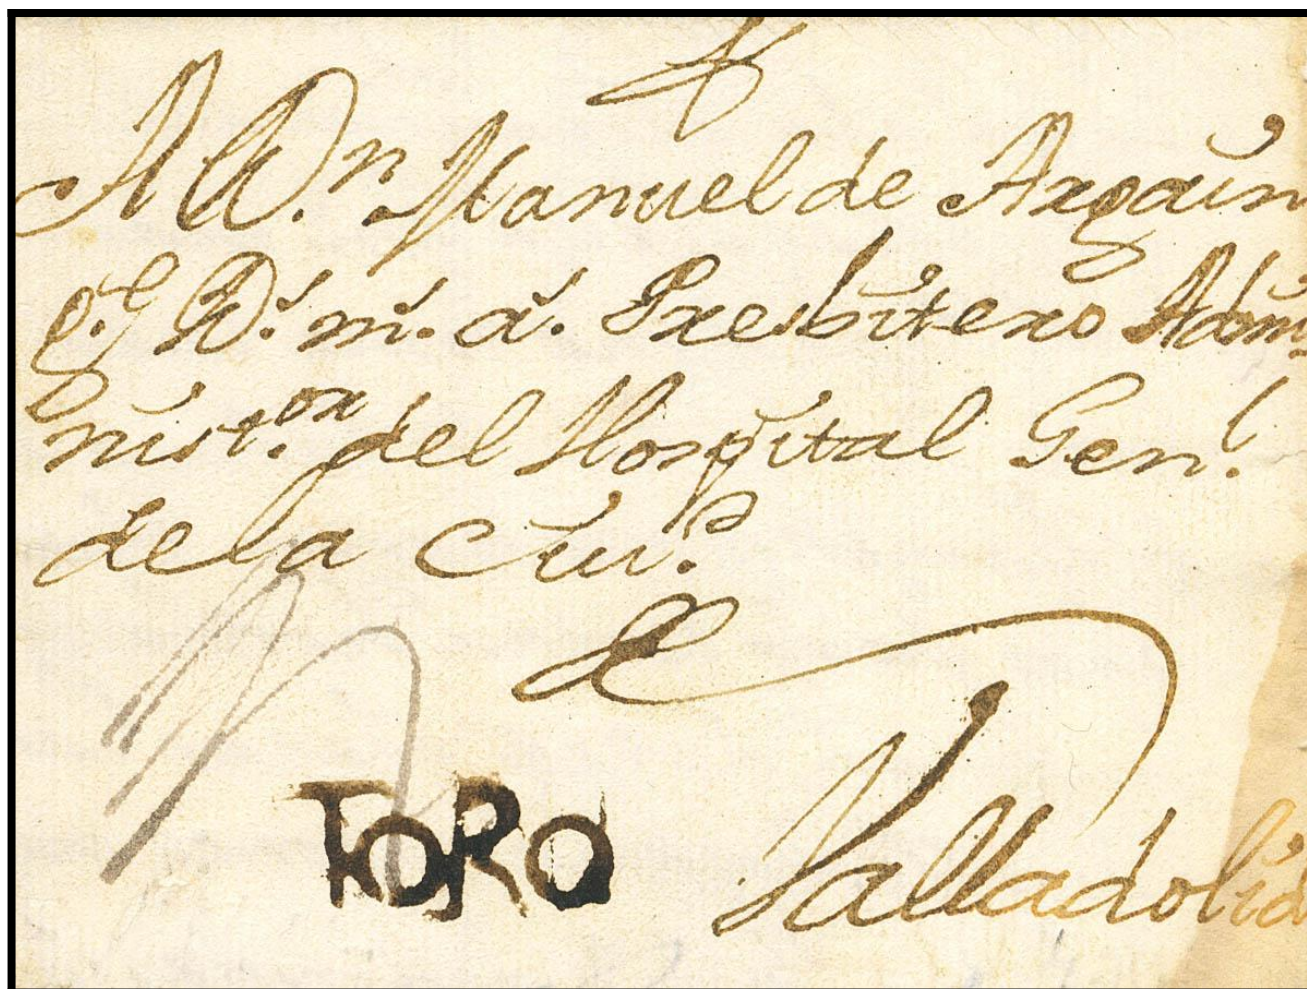 A Dn. Manuel de Argain
q. G. D. m. a. Presbitero Admi
nist.or del Hospital Gen.l
de la Ciu.d
de
Valladolid
TORO